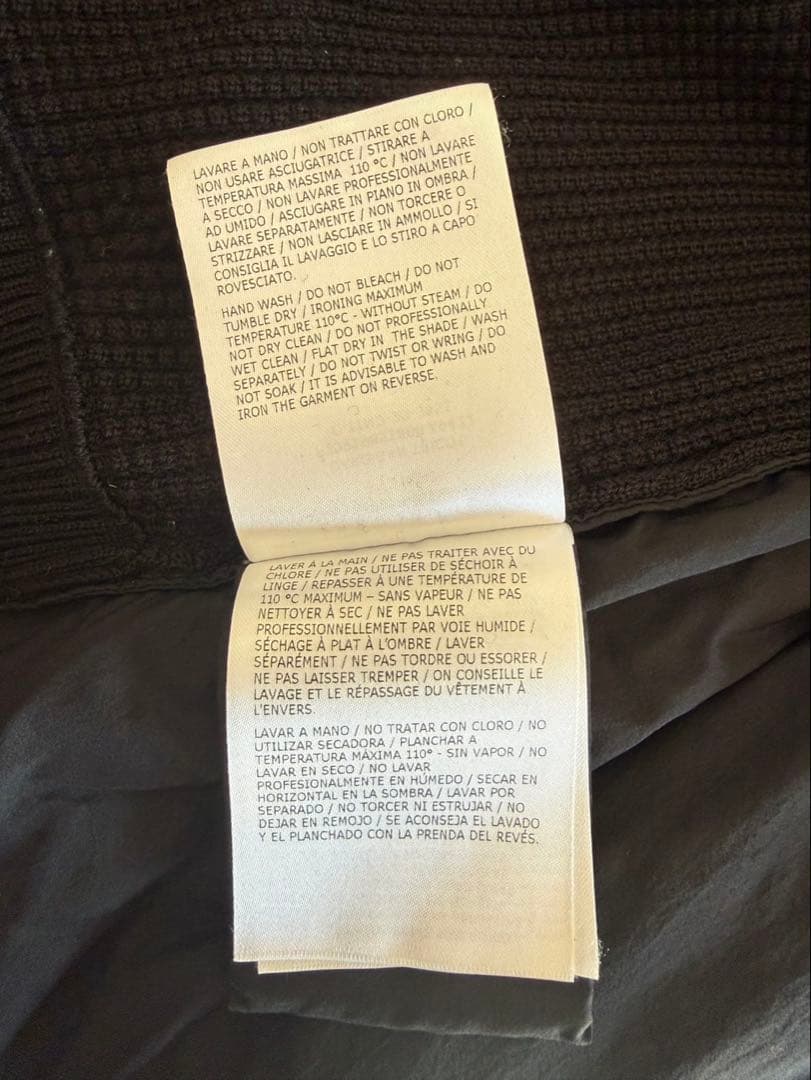 LAVARE A MANO / NON TRATTARE CON CLORO /
NON USARE ASCIUGATRICE / STIRARE A
TEMPERATURA MASSIMA 110 °C / NON LAVARE
A SECCO / NON LAVARE PROFESSIONALMENTE
AD UMIDO / ASCIUGARE IN PIANO IN OMBRA /
LAVARE SEPARATAMENTE / NON TORCERE O
STRIZZARE / NON LASCIARE IN AMMOLLO / SI
CONSIGLIA IL LAVAGGIO E LO STIRO A CAPO
ROVESCIATO.
HAND WASH / DO NOT BLEACH / DO NOT
TUMBLE DRY / IRONING MAXIMUM
TEMPERATURE 110°C - WITHOUT STEAM / DO
NOT DRY CLEAN / DO NOT PROFESSIONALLY
WET CLEAN / FLAT DRY IN THE SHADE / WASH
SEPARATELY / DO NOT TWIST OR WRING / DO
NOT SOAK / IT IS ADVISABLE TO WASH AND
IRON THE GARMENT ON REVERSE.
LAVER À LA MAIN / NE PAS TRAITER AVEC DU
CHLORE / NE PAS UTILISER DE SÉCHOIR À
LINGE / REPASSER À UNE TEMPÉRATURE DE
110 °C MAXIMUM – SANS VAPEUR / NE PAS
NETTOYER À SEC / NE PAS LAVER
PROFESSIONNELLEMENT PAR VOIE HUMIDE /
SÉCHAGE À PLAT À L'OMBRE / LAVER
SÉPARÉMENT / NE PAS TORDRE OU ESSORER /
NE PAS LAISSER TREMPER / ON CONSEILLE LE
LAVAGE ET LE RÉPASSAGE DU VÊTEMENT À
L'ENVERS.
LAVAR A MANO / NO TRATAR CON CLORO / NO
UTILIZAR SECADORA / PLANCHAR A
TEMPERATURA MÁXIMA 110° - SIN VAPOR / NO
LAVAR EN SECO / NO LAVAR
PROFESIONALMENTE EN HÚMEDO / SECAR EN
HORIZONTAL EN LA SOMBRA / LAVAR POR
SEPARADO / NO TORCER NI ESTRUJAR / NO
DEJAR EN REMOJO / SE ACONSEJA EL LAVADO
Y EL PLANCHADO CON LA PRENDA DEL REVÉS.